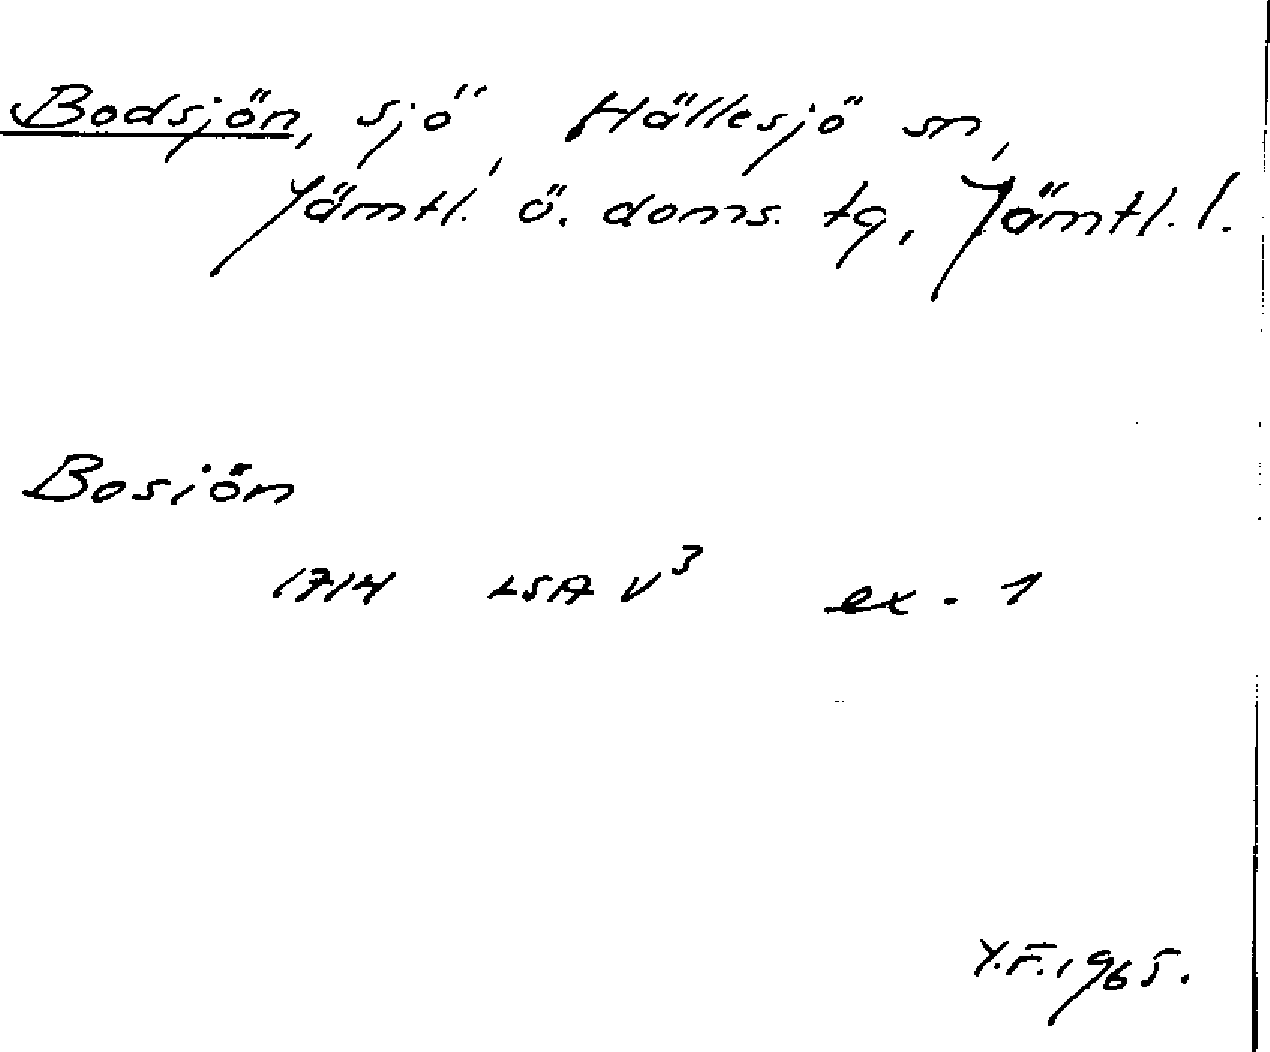 Bodsjön, sjö, Hällesjö sn,
Jämtl. ö. doms. tg, Jämtl. l.
Bosiön
1714 LSA V³ ex. 1
Y.F. 1965.